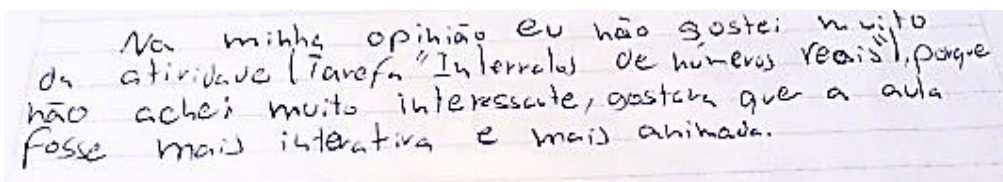 Na minha opinião eu não gostei muito
da atividade (Tarefa "Intervalos de números reais"), porque
não achei muito interessante, gostava que a aula
fosse mais interativa e mais animada.